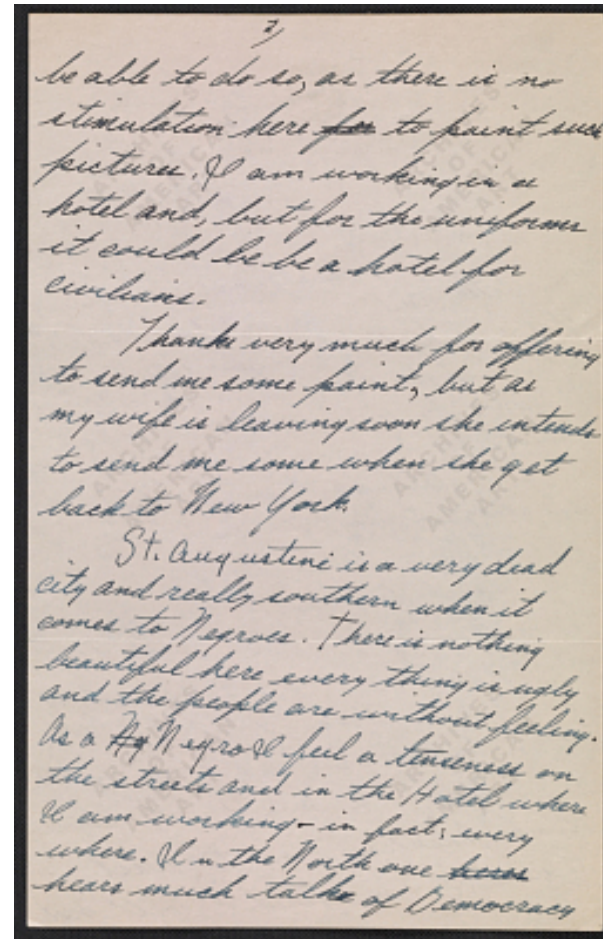 2)
be able to do so, as there is no
stimulation here for to paint such
pictures. I am working in a
hotel and, but for the uniforms
it could be be a hotel for
civilians.
Thanks very much for offering
to send me some paint, but as
my wife is leaving soon she intends
to send me some when she get
back to New York.
St. Augustine is a very dead
city and really southern when it
comes to Negroes. There is nothing
beautiful here every thing is ugly
and the people are without feeling.
As a Ny Negro I feel a tenseness on
the streets and in the Hotel where
I am working - in fact; every
where. In the North one hears
hears much talk of Democracy
ARCHIVES OF AMERICAN ART